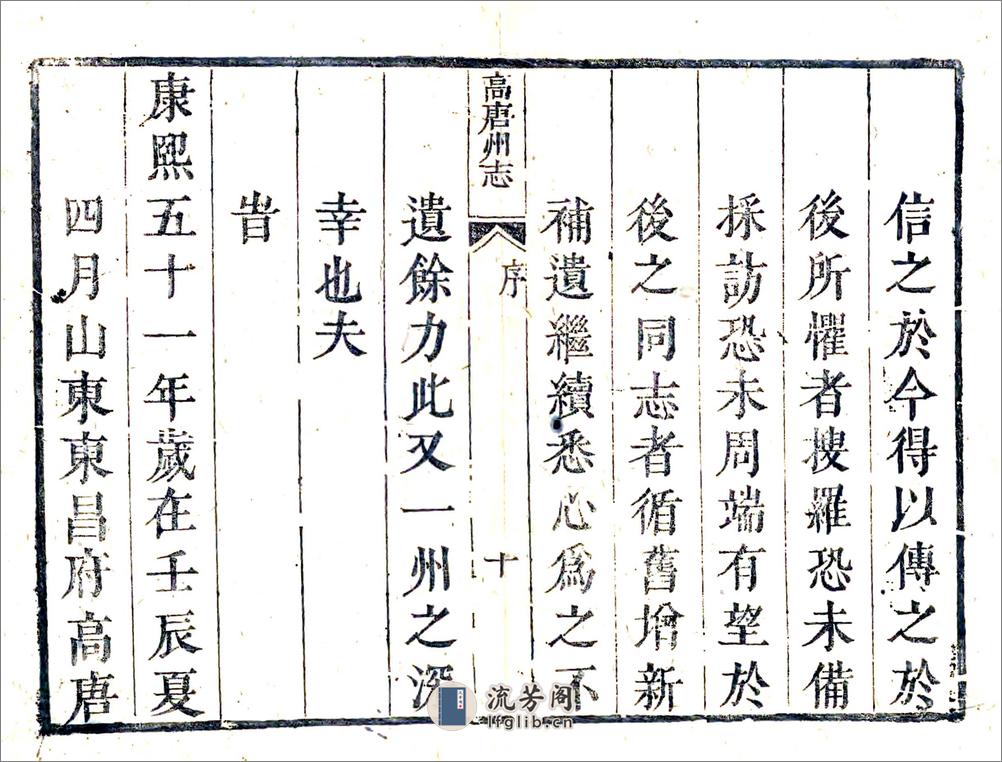 信之於今得以傳之於
後所懼者搜羅恐未備
採訪恐未周端有望於
後之同志者循舊增新
補遺繼續悉心為之不
高唐州志
序
十
遺餘力此又一州之深
幸也夫
旹
康熙五十一年歲在壬辰夏
四月山東東昌府高唐
流芳阁
lfglib.cn